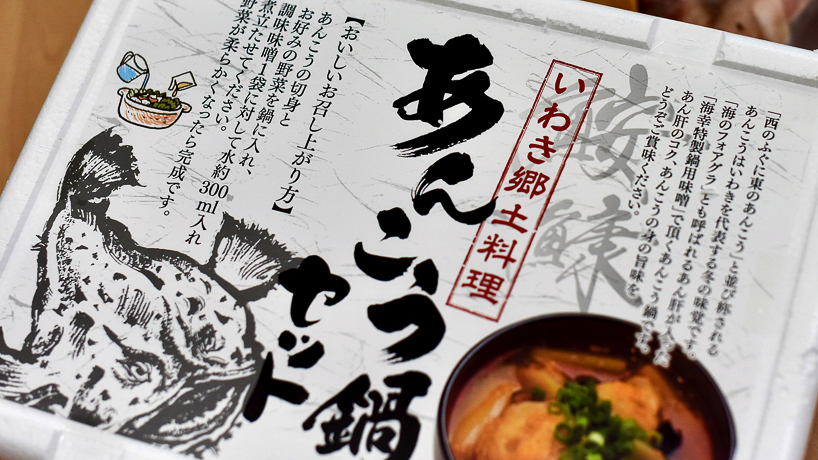 「西のふぐに東のあんこう」と並び称される
あんこうはいわきを代表する冬の味覚です。
「海のフォアグラ」とも呼ばれるあん肝が入った
「海幸特製鍋用味噌」で頂くあんこう鍋です。
あん肝のコク、あんこうの身の旨味を、
どうぞご賞味ください。
鮟鱇
いわき郷土料理
あんこう鍋
セット
【おいしいお召し上がり方】
あんこうの切身と
お好みの野菜を鍋に入れ、
調味味噌1袋に対して水約300ml入れ
煮立たせてください。
野菜が柔らかくなったら完成です。